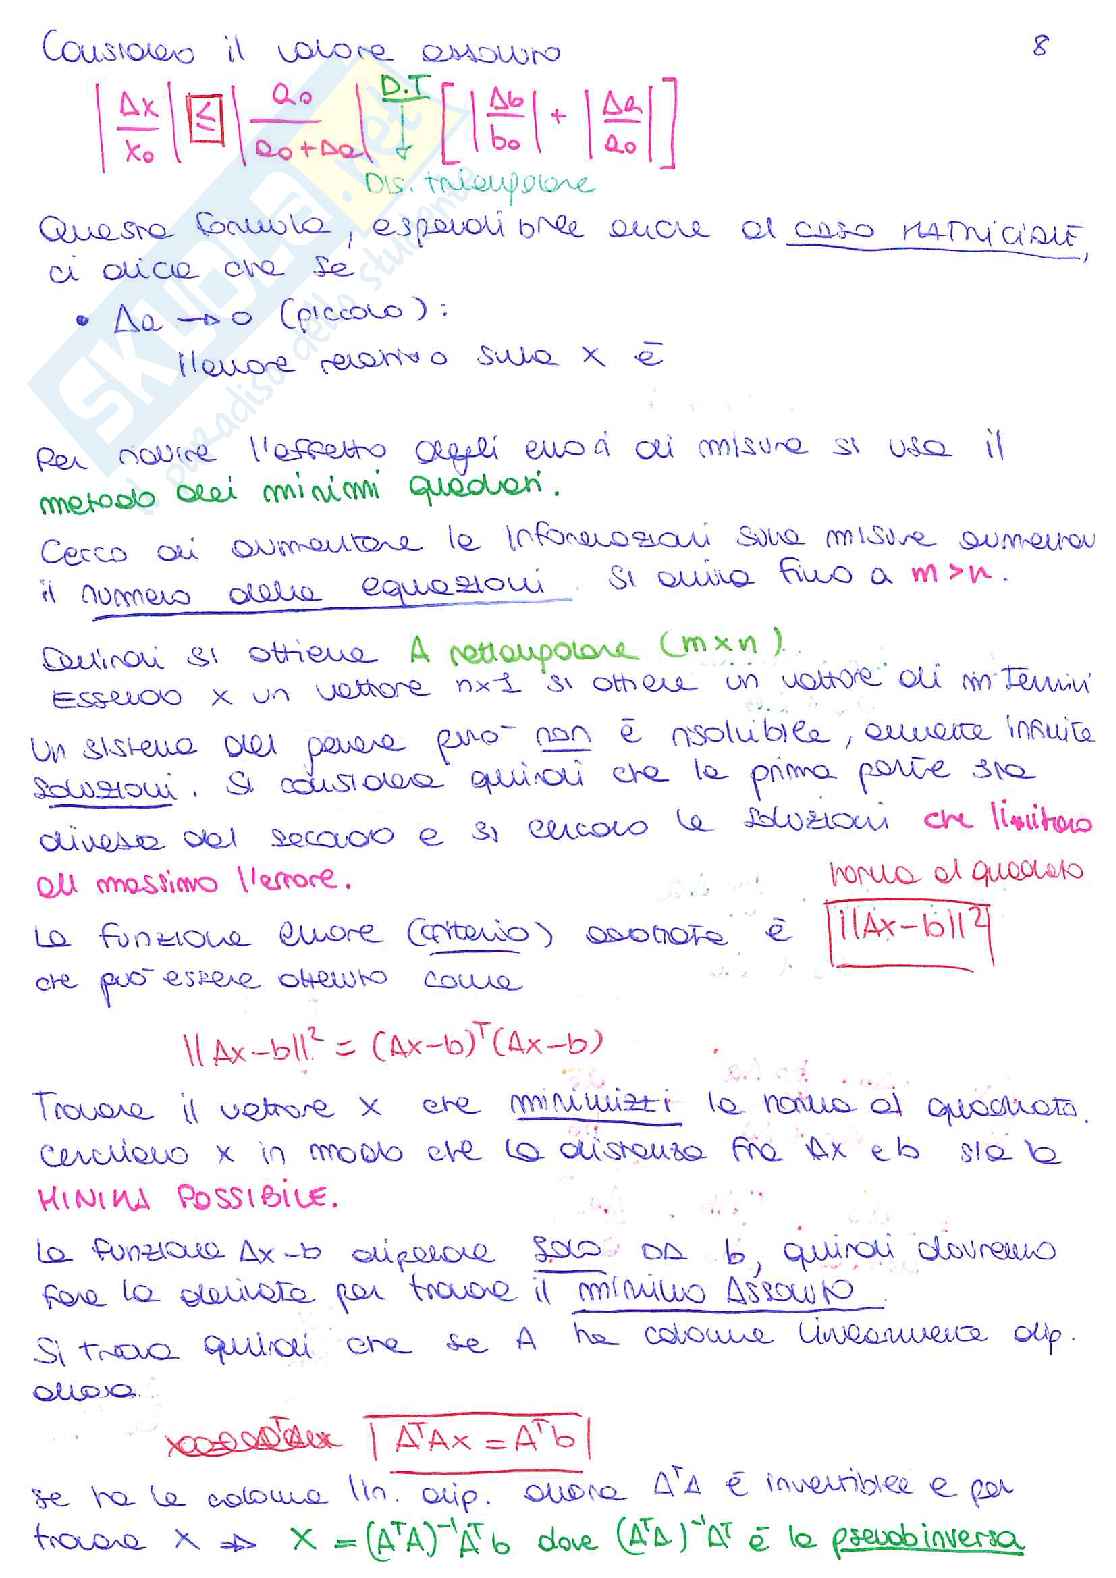 Considero il valore assoluto
8
|Δx/x₀| ≤ |a₀/(a₀+Δa)| D.T [|Δb/b₀| + |Δa/a₀|]
Dis. triangolare
Questa formula, espandibile anche al caso MATRICIALE,
ci dice che se
• Δa → 0 (piccolo):
l'errore relativo sulla x è
Per ridurre l'effetto degli errori di misura si usa il
metodo dei minimi quadrati.
Cerco di aumentare le informazioni sulle misure aumentando
il numero delle equazioni. Si arriva fino a m>n.
Quindi si ottiene A rettangolare (m×n).
Essendo x un vettore n×1 si ottiene un vettore di m termini
Un sistema del genere può non è risolubile, ammette infinite
soluzioni. Si considera quindi che la prima parte sia
diversa dal secondo e si cercano le soluzioni che limitano
al massimo l'errore.
norma al quadrato
La funzione errore (criterio) associata è ||Ax-b||²
che può essere ottenuto come
||Ax-b||² = (Ax-b)ᵀ(Ax-b)
Trovare il vettore x che minimizzi la norma al quadrato.
Cerchiamo x in modo che la distanza fra Ax e b sia la
MINIMA POSSIBILE.
La funzione Ax-b dipende solo DA b, quindi dovremo
fare la derivata per trovare il minimo ASSOLUTO.
Si trova quindi che se A ha colonne linearmente dip.
allora
AᵀAx = Aᵀb
se ha le colonne lin. dip. allora AᵀA è invertibile e per
trovare x ⇒ X = (AᵀA)⁻¹Aᵀb dove (AᵀA)⁻¹Aᵀ è la pseudoinversa
SKUOLA.net
il paradiso dello studente